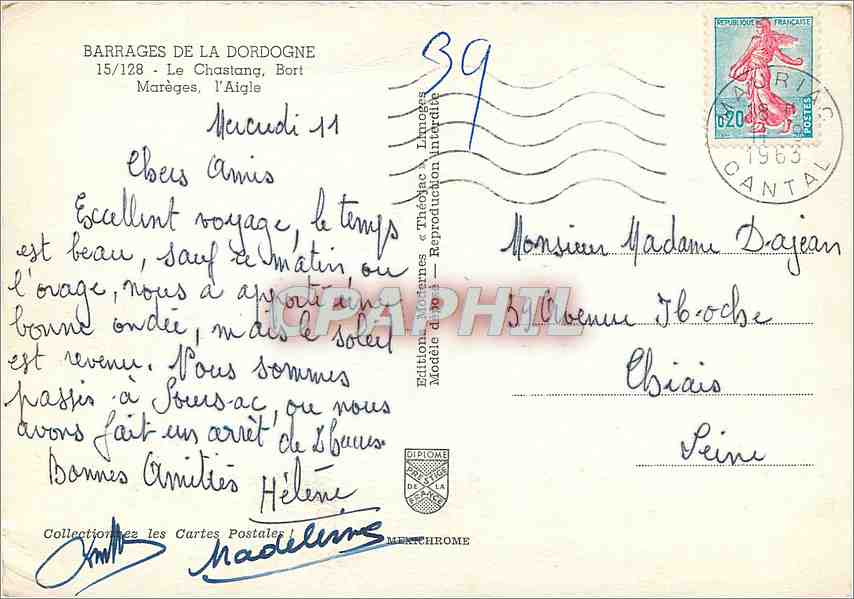 BARRAGES DE LA DORDOGNE
15/128 - Le Chastang, Bort
Marèges, l'Aigle
39
REPUBLIQUE FRANÇAISE
0,20
POSTES
MAURIAC
1963
CANTAL
Mercredi 11
Chers Amis
Excellent voyage, le temps
est beau, sauf ce matin ou
l'orage, nous a apporté une
bonne ondée, mais le soleil
est revenu. Nous sommes
passés à Soursac, ou nous
avons fait un arrêt de 2 heures
Bonnes Amitiés
Hélène
Madeleine
Editions Modernes « Théojac » Limoges
Modèle déposé — Reproduction interdite
CPAPHIL
Monsieur Madame Dajean
39 Avenue Hoche
Thiais
Seine
DIPLOME
PRESTIGE
DE LA
FRANCE
Collectionnez les Cartes Postales !
MEXICHROME